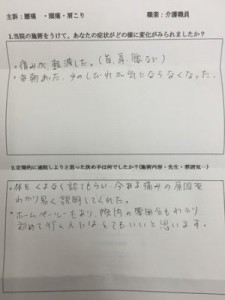 主訴：腰痛 ・頭痛・肩こり 職業：介護職員
1.当院の施術をうけて、あなたの症状がどの様に変化がみられましたか？
・痛みが軽減した。(首、肩、腰など)
・毎朝あった、手のしびれが気にならなくなった。
2.定期的に通院しようと思った決め手は何でしたか？(施術内容・先生・雰囲気…)
・体をくまなく診てもらい、今ある痛みの原因を
わかり易く説明してくれた。
・ホームページもあり、院内の雰囲気もわかり
初めて行く人にはとてもいいと思います。